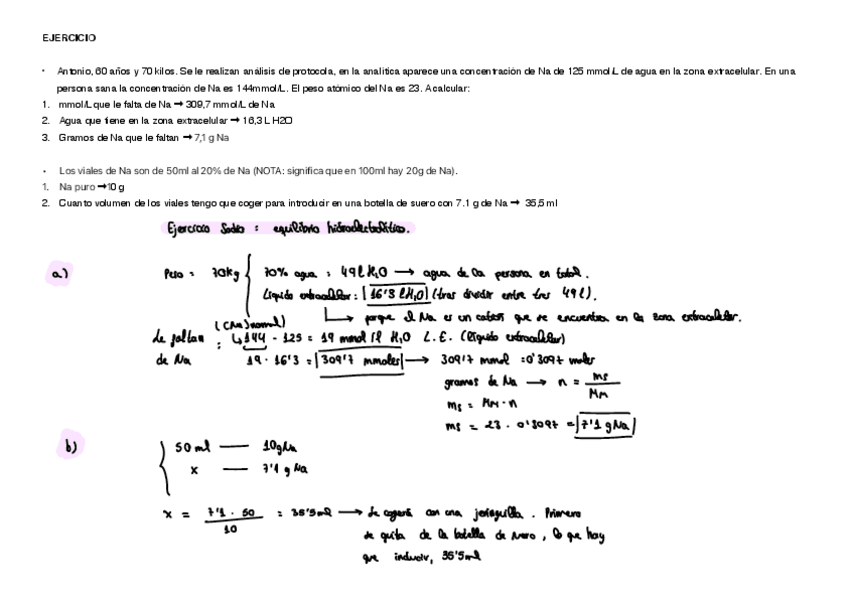 EJERCICIO
• Antonio, 60 años y 70 kilos. Se le realizan análisis de protocola, en la analítica aparece una concentración de Na de 125 mmol/L de agua en la zona extracelular. En una
persona sana la concentración de Na es 144mmol/L. El peso atómico del Na es 23. A calcular:
1. mmol/L que le falta de Na → 309,7 mmol/L de Na
2. Agua que tiene en la zona extracelular → 16,3 L H2O
3. Gramos de Na que le faltan → 7,1 g Na
• Los viales de Na son de 50ml al 20% de Na (NOTA: significa que en 100ml hay 20g de Na).
1. Na puro → 10 g
2. Cuanto volumen de los viales tengo que coger para introducir en una botella de suero con 7.1 g de Na → 35,5 ml
Ejercicio Sodio : equilibrio hidroelectrolítico.
a) Peso = 70kg { 70% agua : 49 l H₂O → agua de la persona en total.
Líquido extracelular : 16'3 l H₂O (tras dividir entre tres 49 l).
↳ porque el Na es un catión que se encuentra en la zona extracelular.
(CNa) normal)
Le faltan : ↳ 144 - 125 = 19 mmol/l H₂O L.E. (líquido extracelular)
de Na 19 · 16'3 = 309'7 mmoles → 309'7 mmol = 0'3097 moles
gramos de Na → n = ms / Mm
ms = Mm · n
ms = 23 · 0'3097 = 7'1 g Na
b) { 50 ml — 10g Na
x — 7'1 g Na
x = 7'1 · 50 / 10 = 35'5 ml → se cogerá con una jeringuilla. Primero
se quita de la botella de suero, lo que hay
que incluir, 35'5 ml